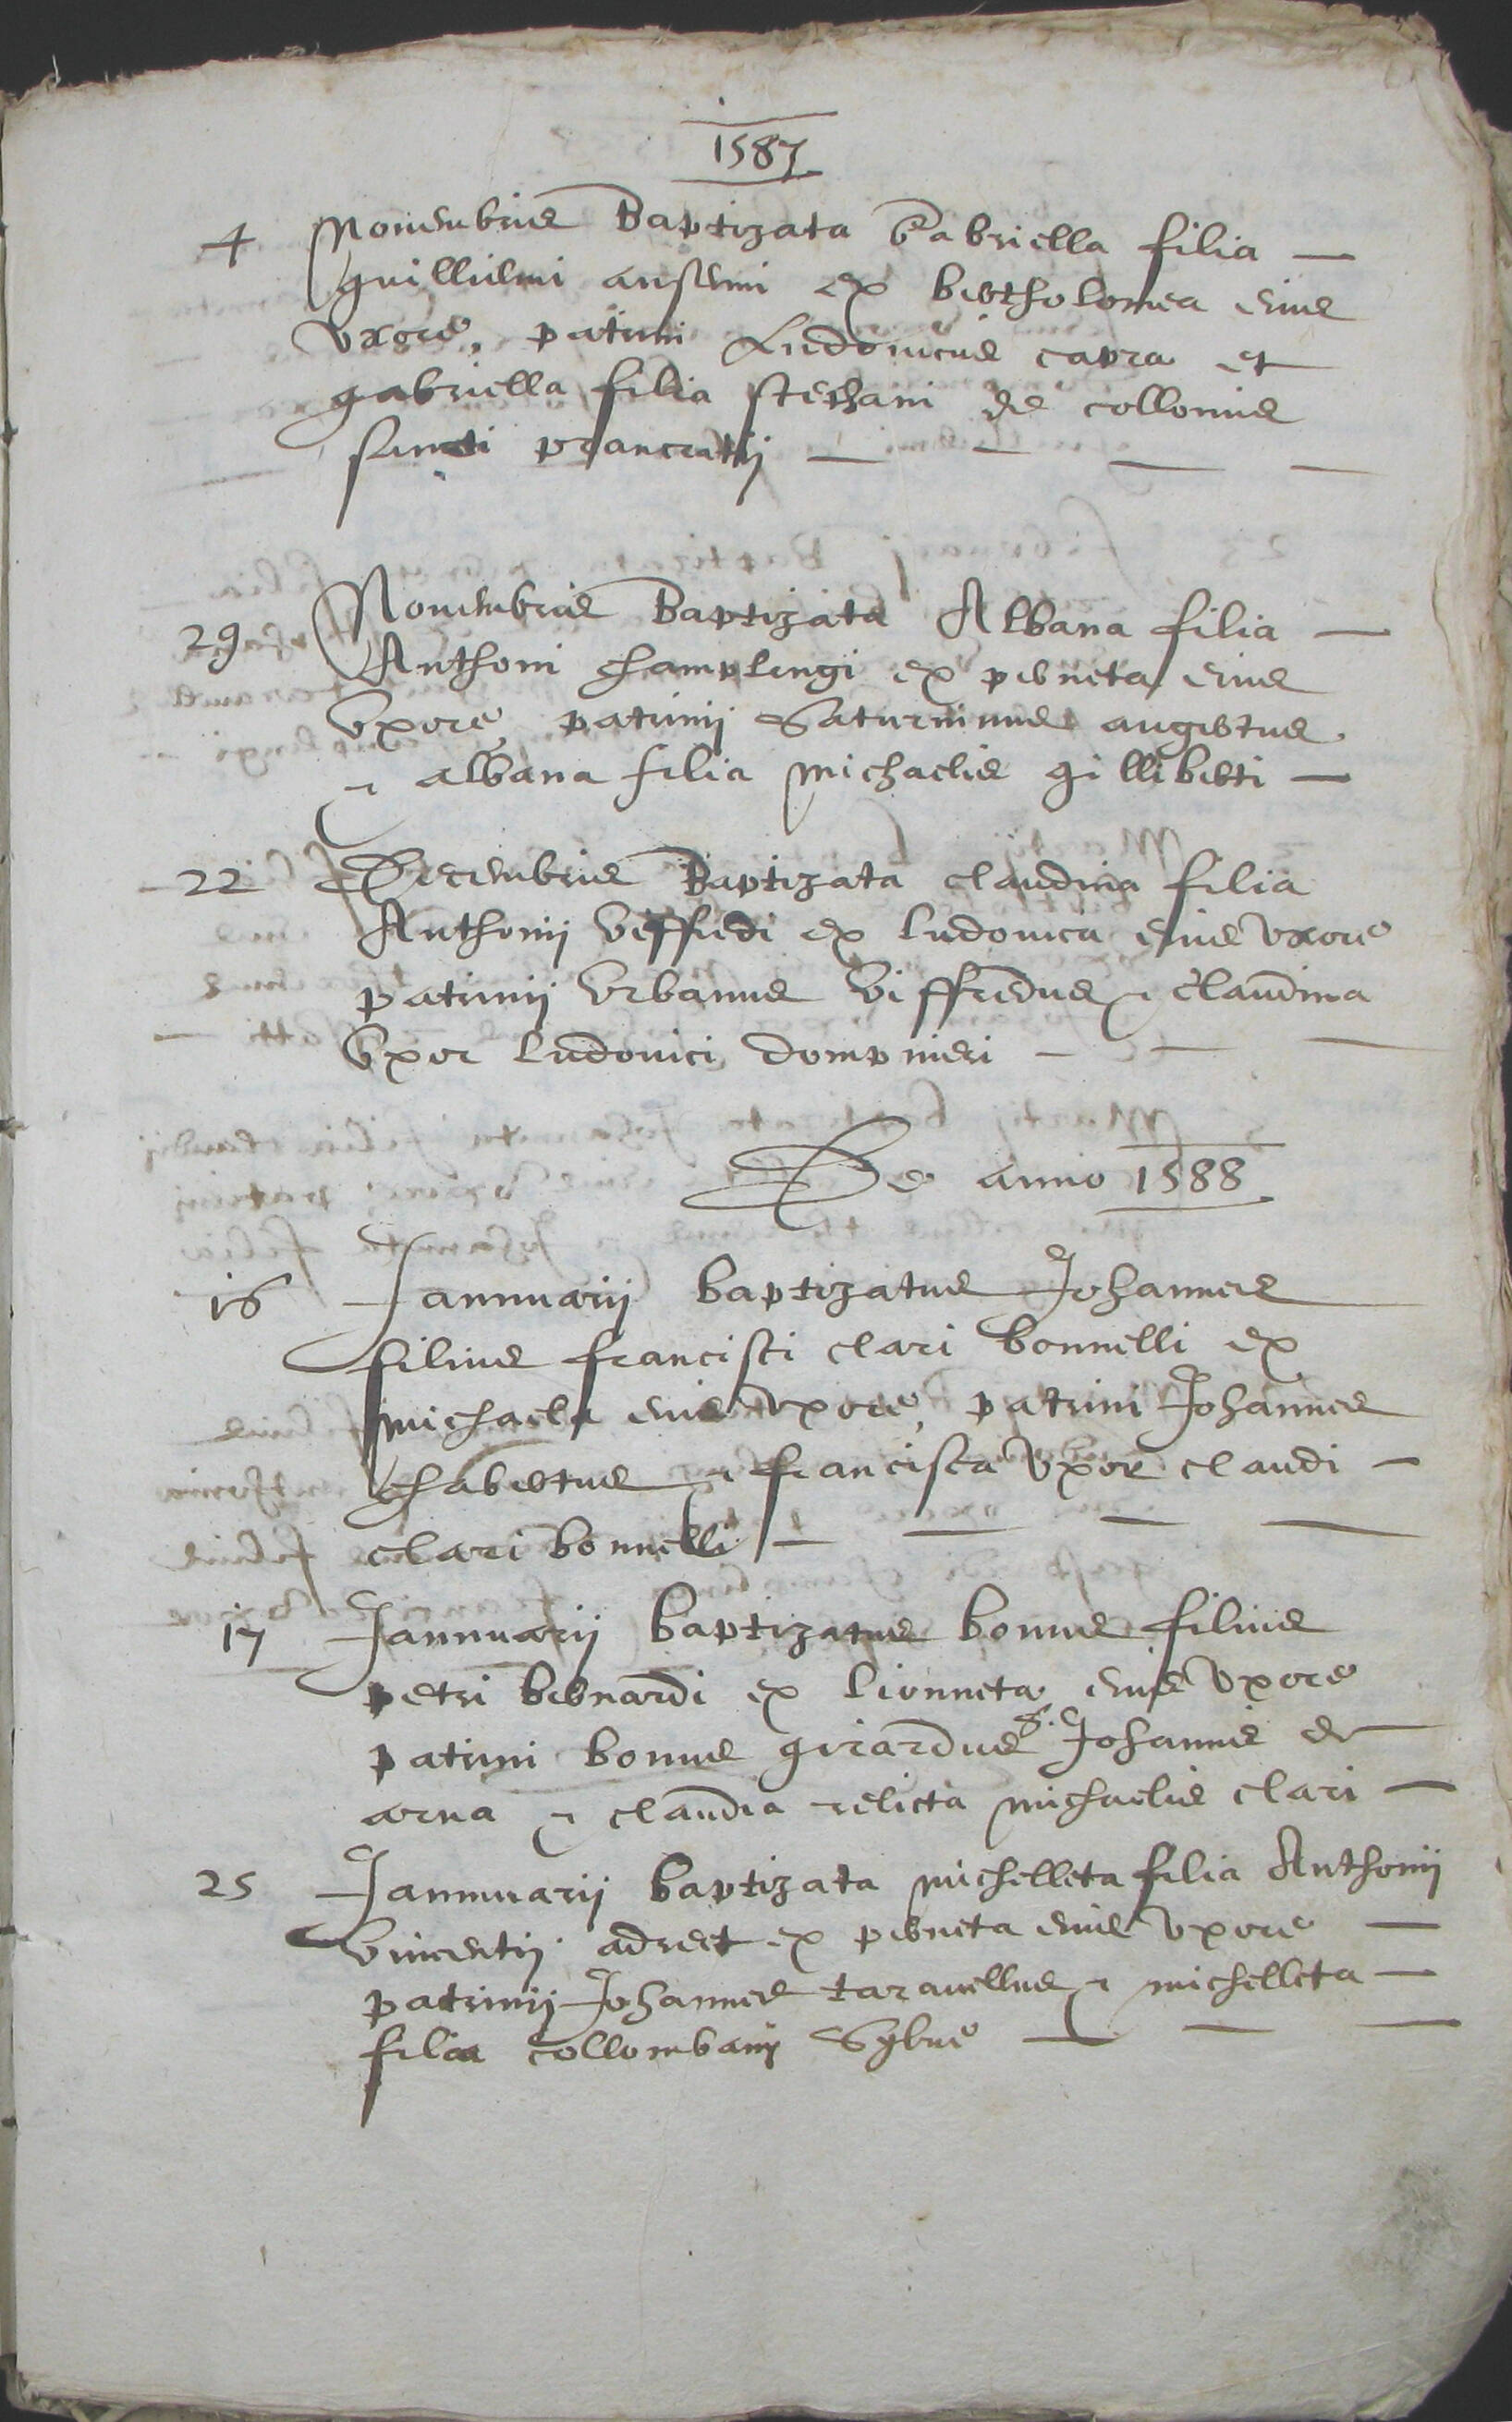 1587
4 Novembris Baptizata Gabriella filia —
guillielmi anselmi ex bertholomea eius
uxore, patrini Ludovicus capra et
gabriella filia stephani de collonnis
sancti prancratij — — — —
29 Novembris Baptizata Albana filia —
Anthoni champlongi ex perneta eius
Uxore, patrinij Saturninus augertus
& albana filia michaelis gilliberti —
22 Decembris Baptizata claudina filia
Anthonij viffredi ex ludovica eius uxore
patrinij Urbanus viffredus & claudina
Uxor ludovici dompnieri — — —
De anno 1588
16 Jannuarij baptizatus Johannes
filius francisci clari bonnelli ex
michaela eius uxore, patrini Johannes
chabertus & francisca uxor claudi —
clari bonnelli — — — —
17 Jannuarij baptizatus bonus filius
petri bernardi ex lionneta eius uxore
patrini bonus girardus f. Johannis de
arna & claudia relicta michaelis clari —
25 Jannuarij baptizata michelleta filia Anthonij
vincentij adreet ex perneta eius uxore —
patrinij Johannes taravellus & michelleta —
filia collombani Sylve — — —